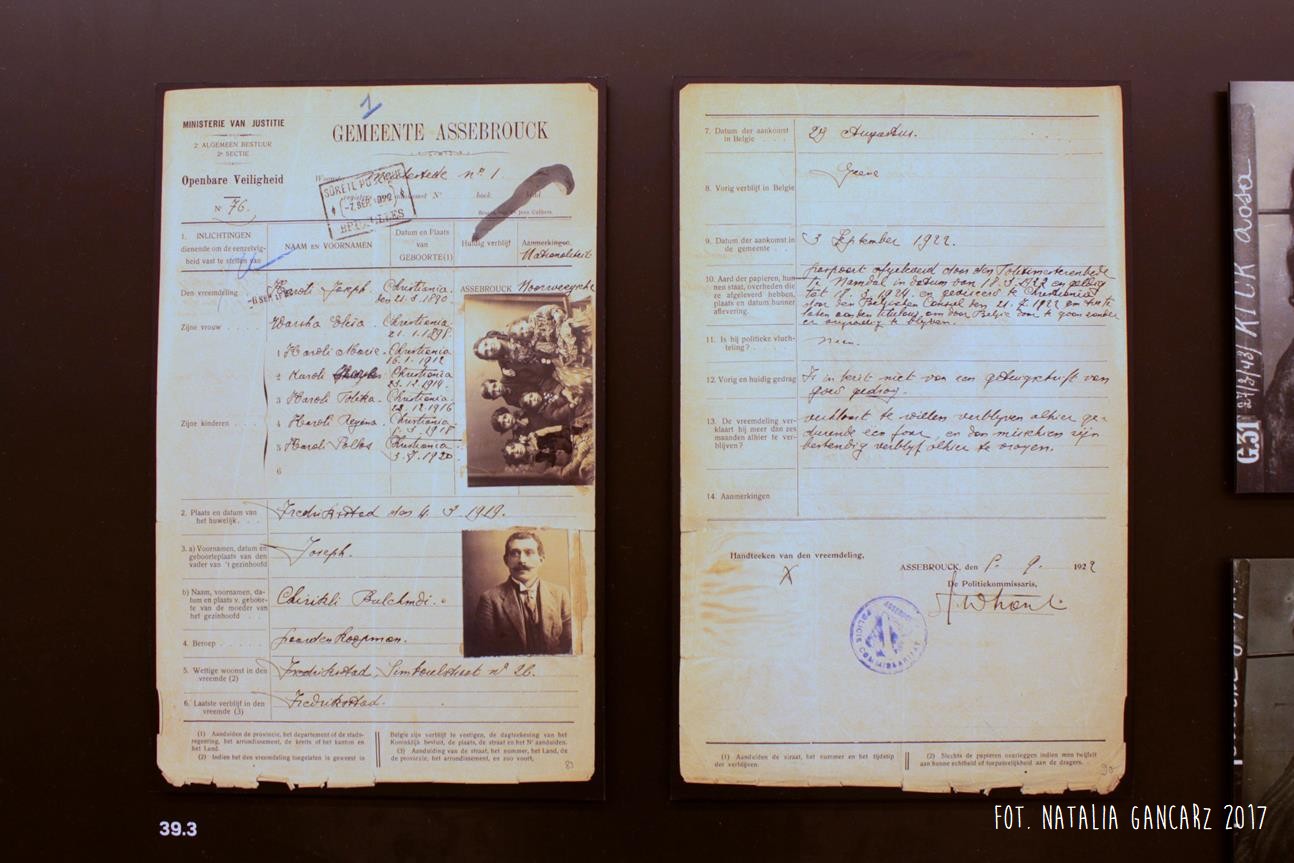 1
MINISTERIE VAN JUSTITIE
2e ALGEMEEN BESTUUR
2e SECTIE
Openbare Veiligheid
No 76.
GEMEENTE ASSEBROUCK
No 1.
-7.SEP.1922
BRUXELLES
1. INLICHTINGEN
dienende om de eenzelvig-
heid vast te stellen van
NAAM EN VOORNAMEN
Datum en Plaats
van
GEBOORTE(1)
Huidig verblijf
Aanmerkingen.
Nationaliteit
Den vreemdeling
Karoli Joseph.
Christiania.
den 21.3.1890
ASSEBROUCK
Noorweegsche
Zijne vrouw
Warsha
Christiania
Zijne kinderen
1 Karoli Marie - Christiania
16.1.1912
2 Karoli
Christiania
23.12.1914.
3 Karoli Politka - Christiania
22.12.1916
4 Karoli Regina. Christiania
1918
5 Karoli
Christiania
1920
6
2. Plaats en datum van
het huwelijk
Fredrikstad den 4. 3. 1919.
3. a) Voornamen, datum en
geboorteplaats van den
vader van 't gezinhoofd
Joseph.
b) Naam, voornamen, da-
tum en plaats v. geboor-
te van de moeder van
het gezinhoofd
4. Beroep
paarden koopman.
5. Wettige woonst in den
vreemde (2)
Fredrikstad, No 26.
6. Laatste verblijf in den
vreemde (3)
Fredrikstad.
(1) Aanduiden de provincie, het departement of de stads-
regeering, het arrondissement, de kreits of het kanton en
het Land.
(2) Indien het den vreemdeling toegelaten is geweest in
België zijn verblijf te vestigen, de dagteekening van het
Koninklijk besluit, de plaats, de straat en het No aanduiden.
(3) Aanduiding van de straat, het nummer, het Land, de
de provincie, het arrondissement, en zoo voort.
7. Datum der aankomst
in Belgie
29 Augustus.
8. Vorig verblijf in Belgie
Geene
9. Datum der aankomst in
de gemeente
3 September 1922.
10. Aard der papieren, hun-
nen staat, overheden die
ze afgeleverd hebben,
plaats en datum hunner
aflevering.
paspoort afgeleverd door den
te in datum van 18.3.1922 en geldig
tot 1924. en geviseerd te Christiania
door den Belgischen Consul den 21.7.1922
om door Belgie door te gaan zonder
er te blijven.
11. Is hij politieke vluch-
teling?
neen.
12. Vorig en huidig gedrag
Is in bezit niet van een getuigschrift van
goed gedrag.
13. De vreemdeling ver-
klaart hij meer dan zes
maanden alhier te ver-
blijven?
verklaart te willen verblijven alhier ge-
durende een jaar, en dan misschien zijn
bestendig verblijf alhier te vragen.
14. Aanmerkingen
Handteeken van den vreemdeling,
X
ASSEBROUCK, den 5. 9. 1922
De Politiekommissaris,
(1) Aanduiden de straat, het nummer en het tijdstip
der verblijven.
(2) Slechts de papieren overleggen indien men twijfelt
aan hunne echtheid of toepasselijkheid aan de dragers.
G.31 27/3/43/
39.3
FOT. NATALIA GANCARZ 2017